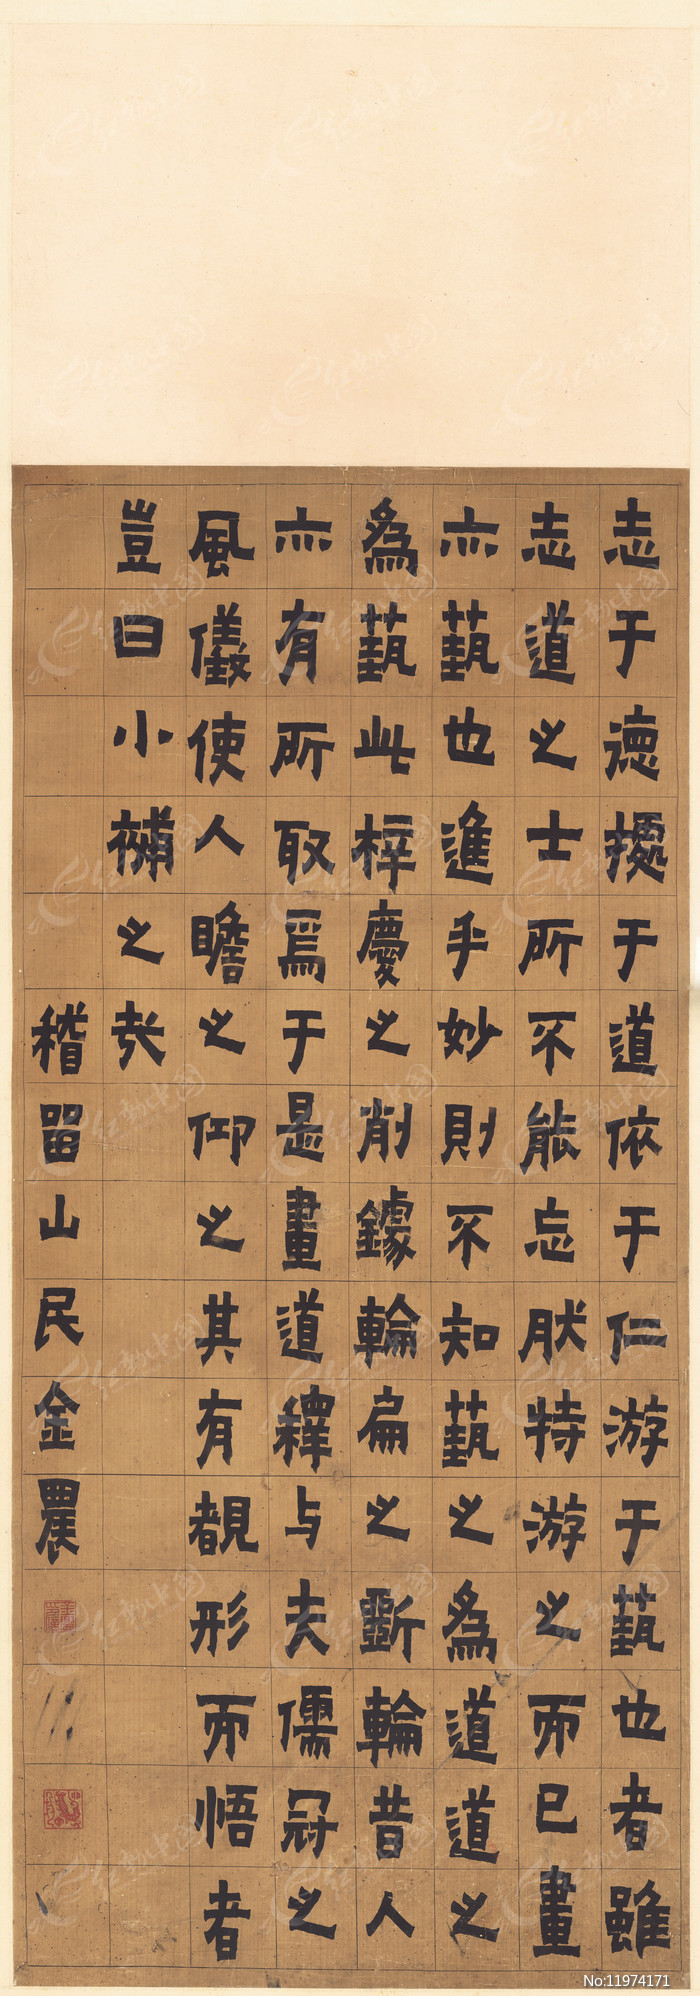 志于德據于道依于仁游于藝也者雖
志道之士所不能忘肰特游之而已畫
亦藝也進乎妙則不知藝之為道道之
為藝此梓慶之削鐻輪扁之斲輪昔人
亦有所取焉于是畫道釋与夫儒冠之
風儀使人瞻之仰之其有覩形而悟者
豈曰小補之哉
稽留山民金農
红动中国
No:11974171